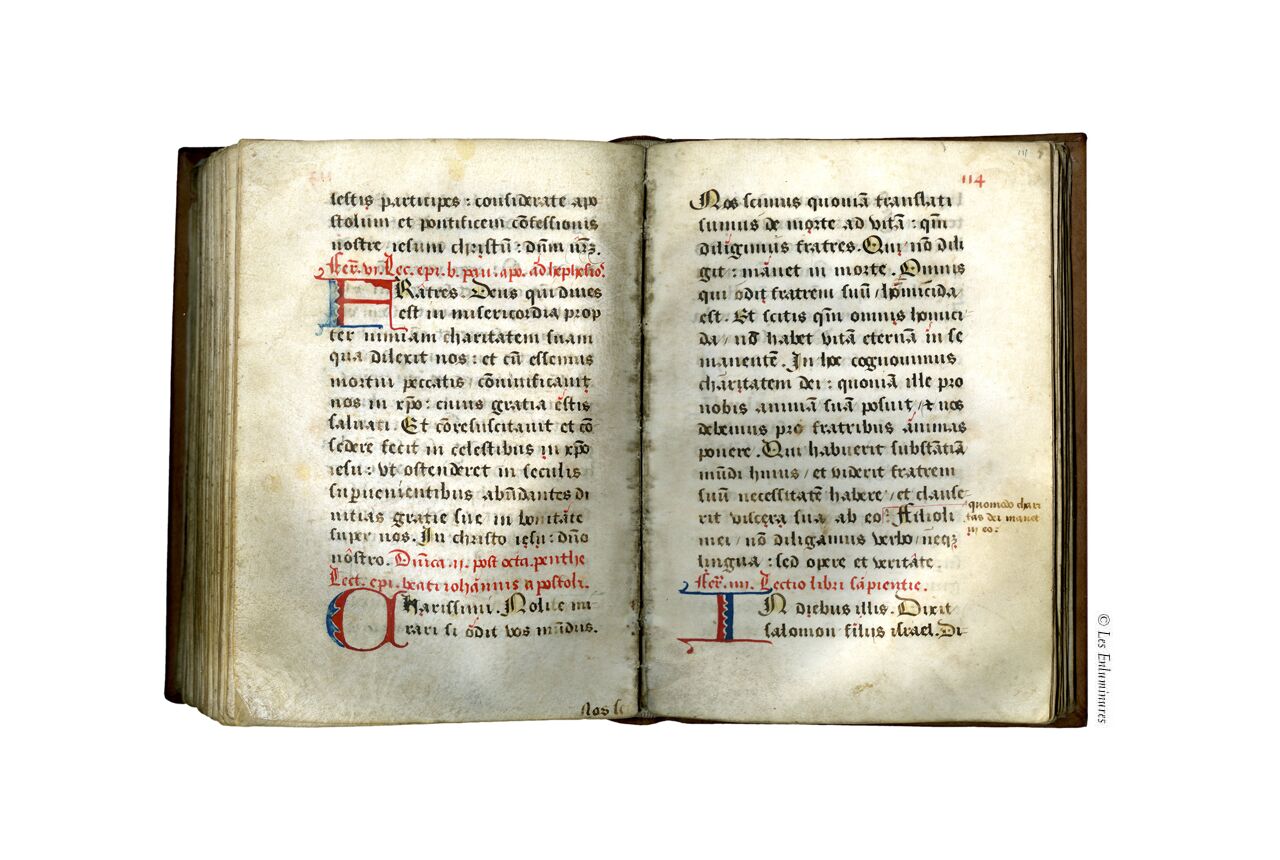 lestis participes : considerate apo
stolum et pontificem cōfessionis
nostre iesum christū : dūm nr̄ꝫ.
Fer̄. vi. Lec. epi. b. pau. apo. ad hephesios.
FRatres. Deus qui diues
est in misericordia prop
ter nimiam charitatem suam
qua dilexit nos : et cū essemus
mortui peccatis cōuiuificauit
nos in xp̄o : cuius gratia estis
saluati. Et cōresuscitauit et cō
sedere fecit in celestibus in xp̄o
iesu : vt ostenderet in seculis
supuenientibus abūdantes di
uitias gratie sue in bonitate
super nos. In christo iesu : dn̄o
nostro. Dūica. ii. post octa. penthe
Lect. epi. beati iohānnis apostoli.
CHarissimi. Nolite mi
rari si odit vos mūdus.
Nos sc
114
Nos scimus quoniā translati
sumus de morte ad vitā : qm̄
diligimus fratres. Qui nō dili
git : manet in morte. Omnis
qui odit fratrem suū / homicida
est. Et scitis qm̄ omnis homici
da / nō habet vitā eternā in se
manentē. In hoc cognouimus
charitatem dei : quoniā ille pro
nobis animā suā posuit / et nos
debemus pro fratribus animas
ponere. Qui habuerit substātiā
mūdi huius / et viderit fratrem
suū necessitatē habere / et clause
rit viscera sua ab eo : Filioli
quomodo chari
tas dei manet
in eo :
mei / nō diligamus verbo / neqꝫ
lingua : sed opere et veritate.
Fer̄. iiii. Lectio libri sapientie.
IN diebus illis. Dixit
salomon filius israel. Di
© Les Enluminures